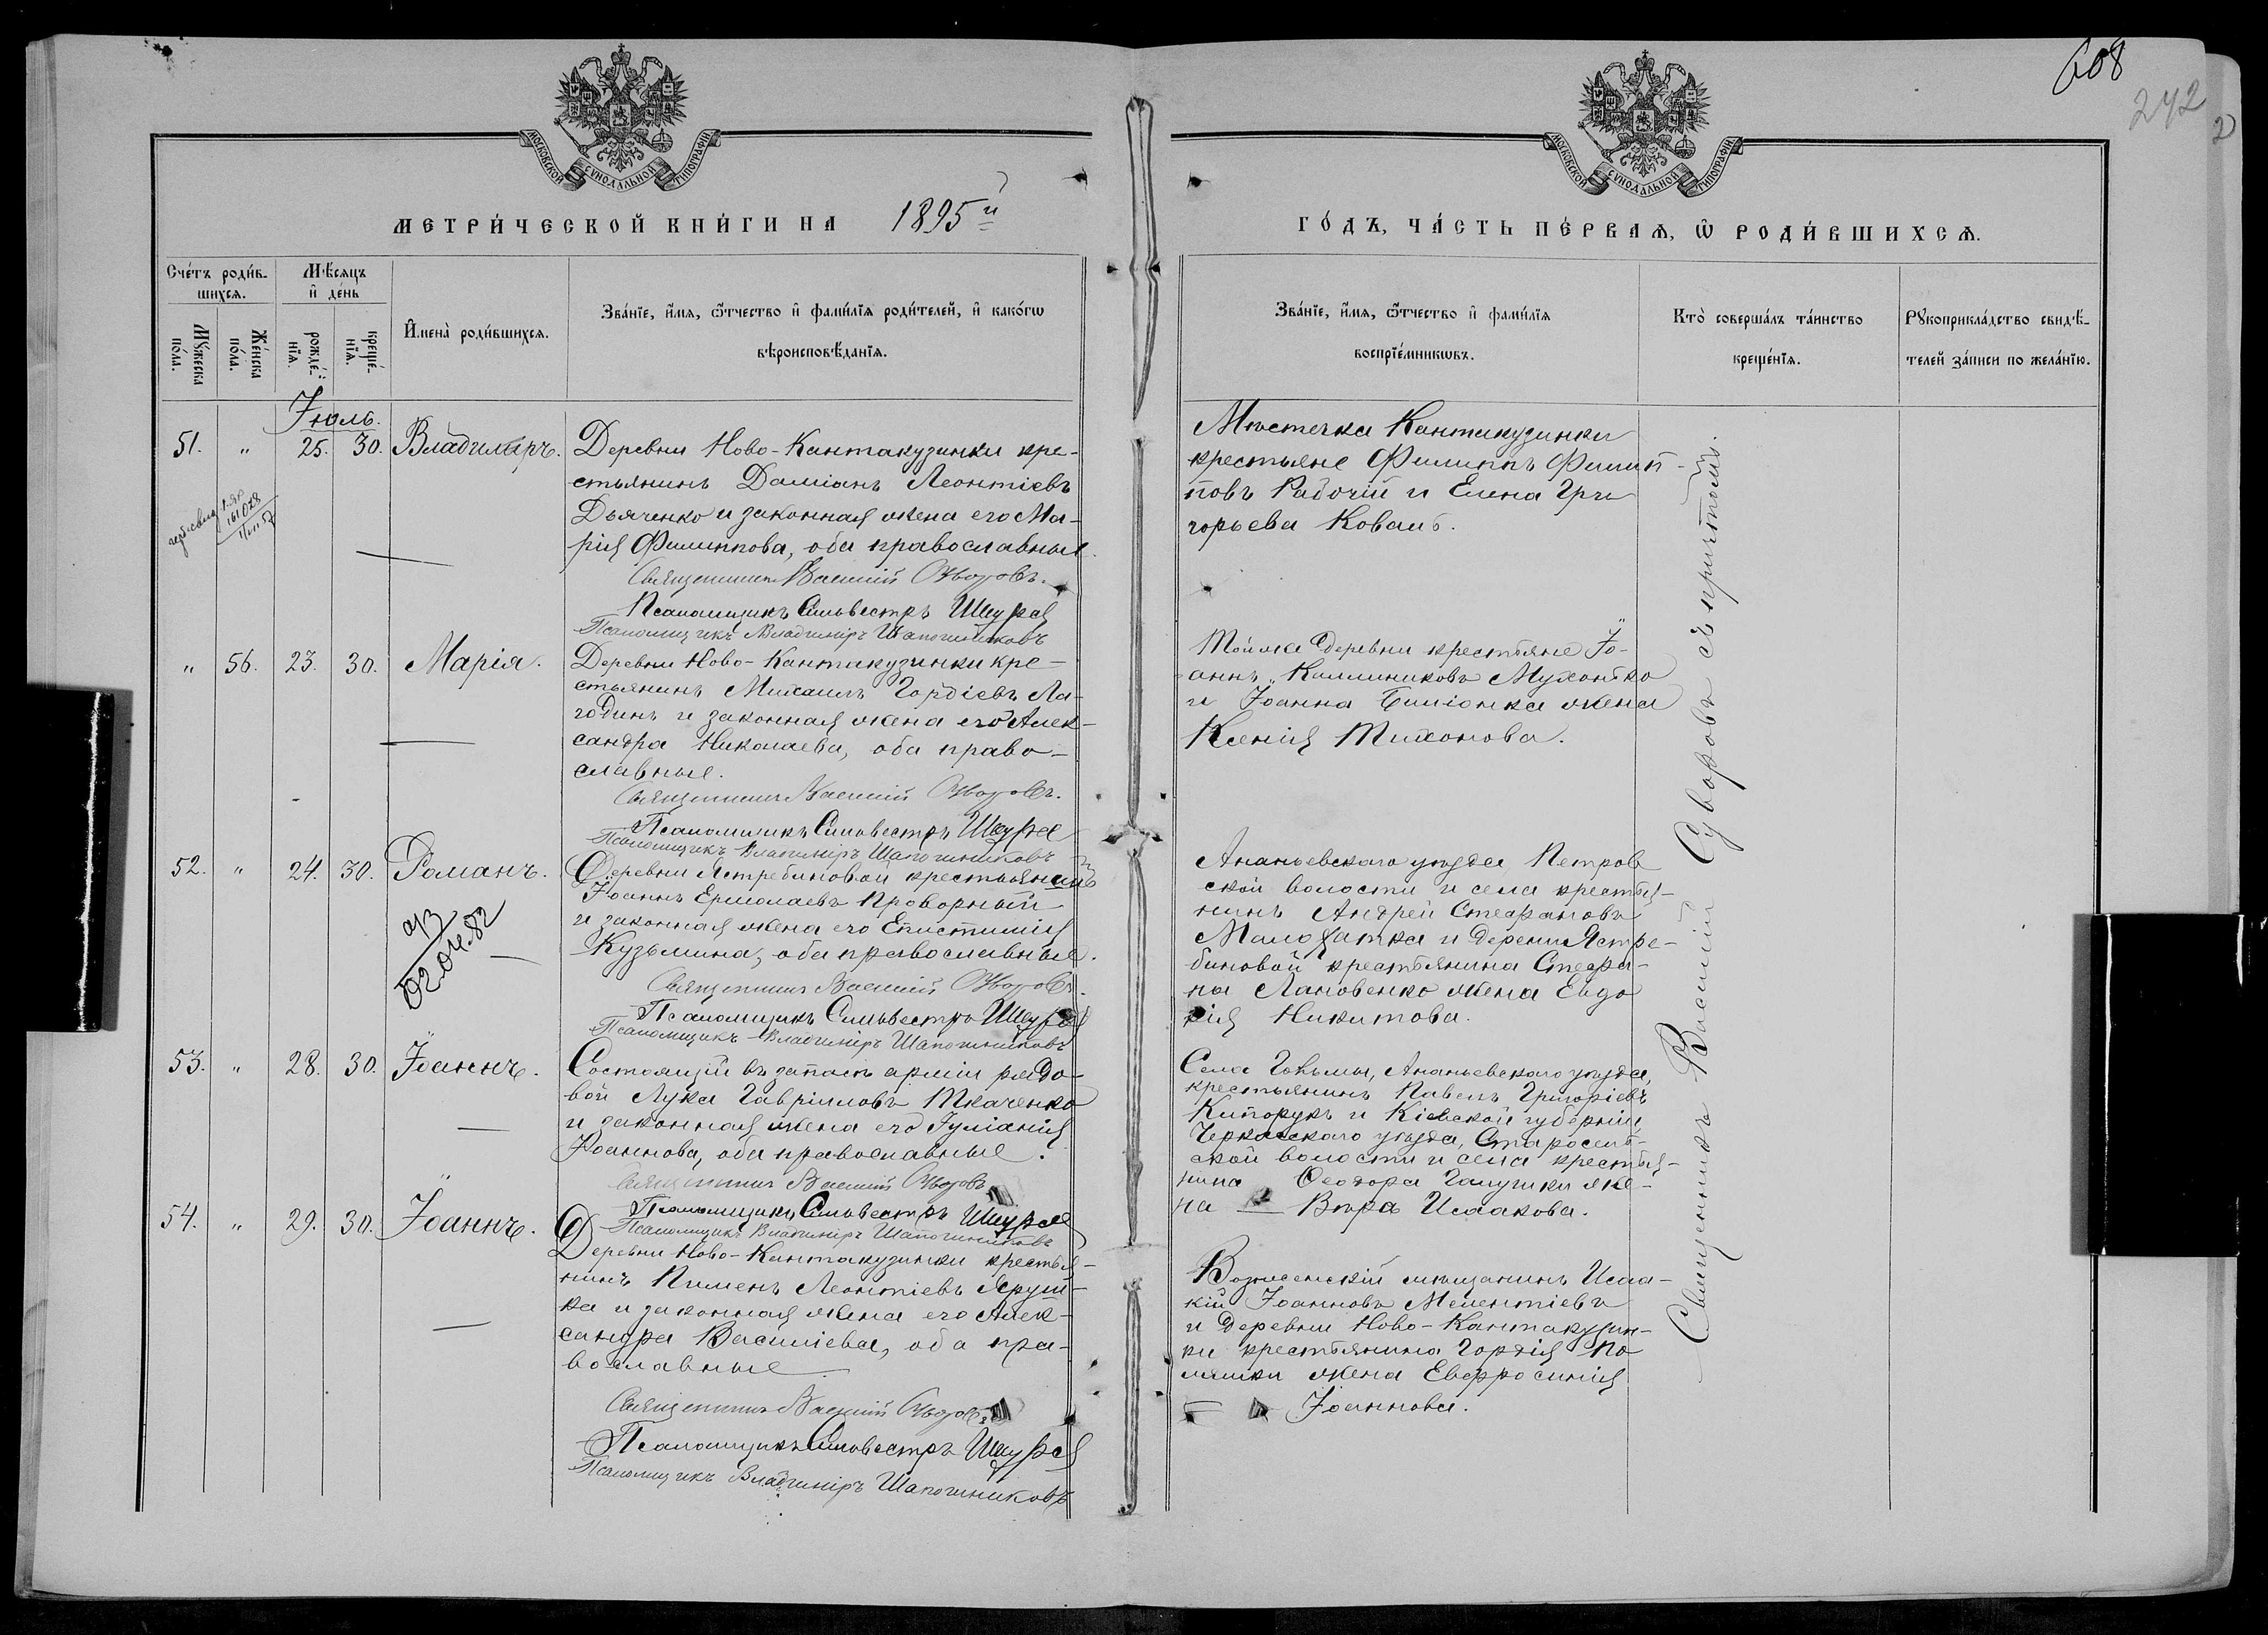 608
242
2
МОСКОВСКОЙ СУНОДАЛЬНОЙ ТИПОГРАФІИ
МОСКОВСКОЙ СУНОДАЛЬНОЙ ТИПОГРАФІИ
МЕТРИ́ЧЕСКОЙ КНИ́ГИ НА 1895й
ГО́ДЪ, ЧА́СТЬ ПЕ́РВАѦ, Ѡ РОДИ́ВШИХСѦ.
Сче́тъ роди́в-
шихсѧ.
Мꙋ́жеска по́ла.
Же́нска по́ла.
Мѣ́сѧцъ
и҆ де́нь
рожде́-нїѧ.
креще́-нїѧ.
И҆мена̀ роди́вшихсѧ.
Зва́нїе, и҆́мѧ, ѻ҆́тчество и҆ фами́лїѧ роди́телей, и҆ како́гѡ
вѣроисповѣ́данїѧ.
Зва́нїе, и҆́мѧ, ѻ҆́тчество и҆ фами́лїѧ
воспрїе́мникѡвъ.
Кто̀ соверша́лъ та́инство
креще́нїѧ.
Рꙋкоприкла́дство свидѣ́-
телей за́писи по жела́нїю.
Іюль.
51. " 25. 30. Владиміръ.
Деревни Ново-Кантакузинки кре-
стьянинъ Даміанъ Леонтіевъ
Дьяченко и законная жена его Ма-
рія Филиппова, оба православные.
Священникъ Василій Суворовъ.
Псаломщикъ Сильвестръ Шкура
Псаломщикъ Владиміръ Шапошниковъ
Мѣстечка Кантакузинки
крестьяне Филиппъ Филип-
повъ Рабочій и Елена Гри-
горьева Коваль.
" 56. 23. 30. Марія.
Деревни Ново-Кантакузинки кре-
стьянинъ Михаилъ Гордіевъ Ла-
годинъ и законная жена его Алек-
сандра Николаева, оба право-
славные.
Священникъ Василій Суворовъ.
Псаломщикъ Сильвестръ Шкура
Псаломщикъ Владиміръ Шапошниковъ
Той же деревни крестьяне Іо-
аннъ Каллиниковъ
и Іоанна жена
Ксенія Тихонова.
52. " 24. 30. Романъ.
02.04.82
Деревни Ястребиновой крестьянинъ
Іоаннъ Ермолаевъ Проворный
и законная жена его Епистимія
Кузьмина, оба православные.
Священникъ Василій Суворовъ.
Псаломщикъ Сильвестръ Шкура
Псаломщикъ Владиміръ Шапошниковъ
Ананьевскаго уѣзда Петров
ской волости и села крестья-
нинъ Андрей Стефановъ
и деревни Ястре-
биновой крестьянина Стефа-
на Лановенко жена Евдо
кія Никитова.
53. " 28. 30. Іоаннъ.
Состоящій въ запасѣ арміи рядо-
вой Лука Гавріиловъ Ткаченко
и законная жена его Іуліанія
Іоаннова, оба православные.
Священникъ Василій Суворовъ.
Псаломщикъ Сильвестръ Шкура
Псаломщикъ Владиміръ Шапошниковъ
Села Гольмы, Ананьевскаго уѣзда,
крестьянинъ Павелъ Григоріевъ
и Кіевской губерніи,
Черкасскаго уѣзда, Старосель-
ской волости и села крестья-
нина Ѳеодора Галушки же-
на Вѣра Исаакова.
54. " 29. 30. Іоаннъ.
Деревни Ново-Кантакузинки крестья-
нинъ Пименъ Леонтіевъ Ярush-
ка и законная жена его Алек-
сандра Василіева, оба пра-
вославные
Священникъ Василій Суворовъ
Псаломщикъ Сильвестръ Шкура
Псаломщикъ Владиміръ Шапошниковъ
Вознесенскій мѣщанинъ Исаа-
кій Іоанновъ Мелентіевъ
и деревни Ново-Кантакузин-
ки крестьянина Гордія По
ляшки жена Евфросинія
Іоаннова.
Священникъ Василій Суворовъ съ причтомъ.